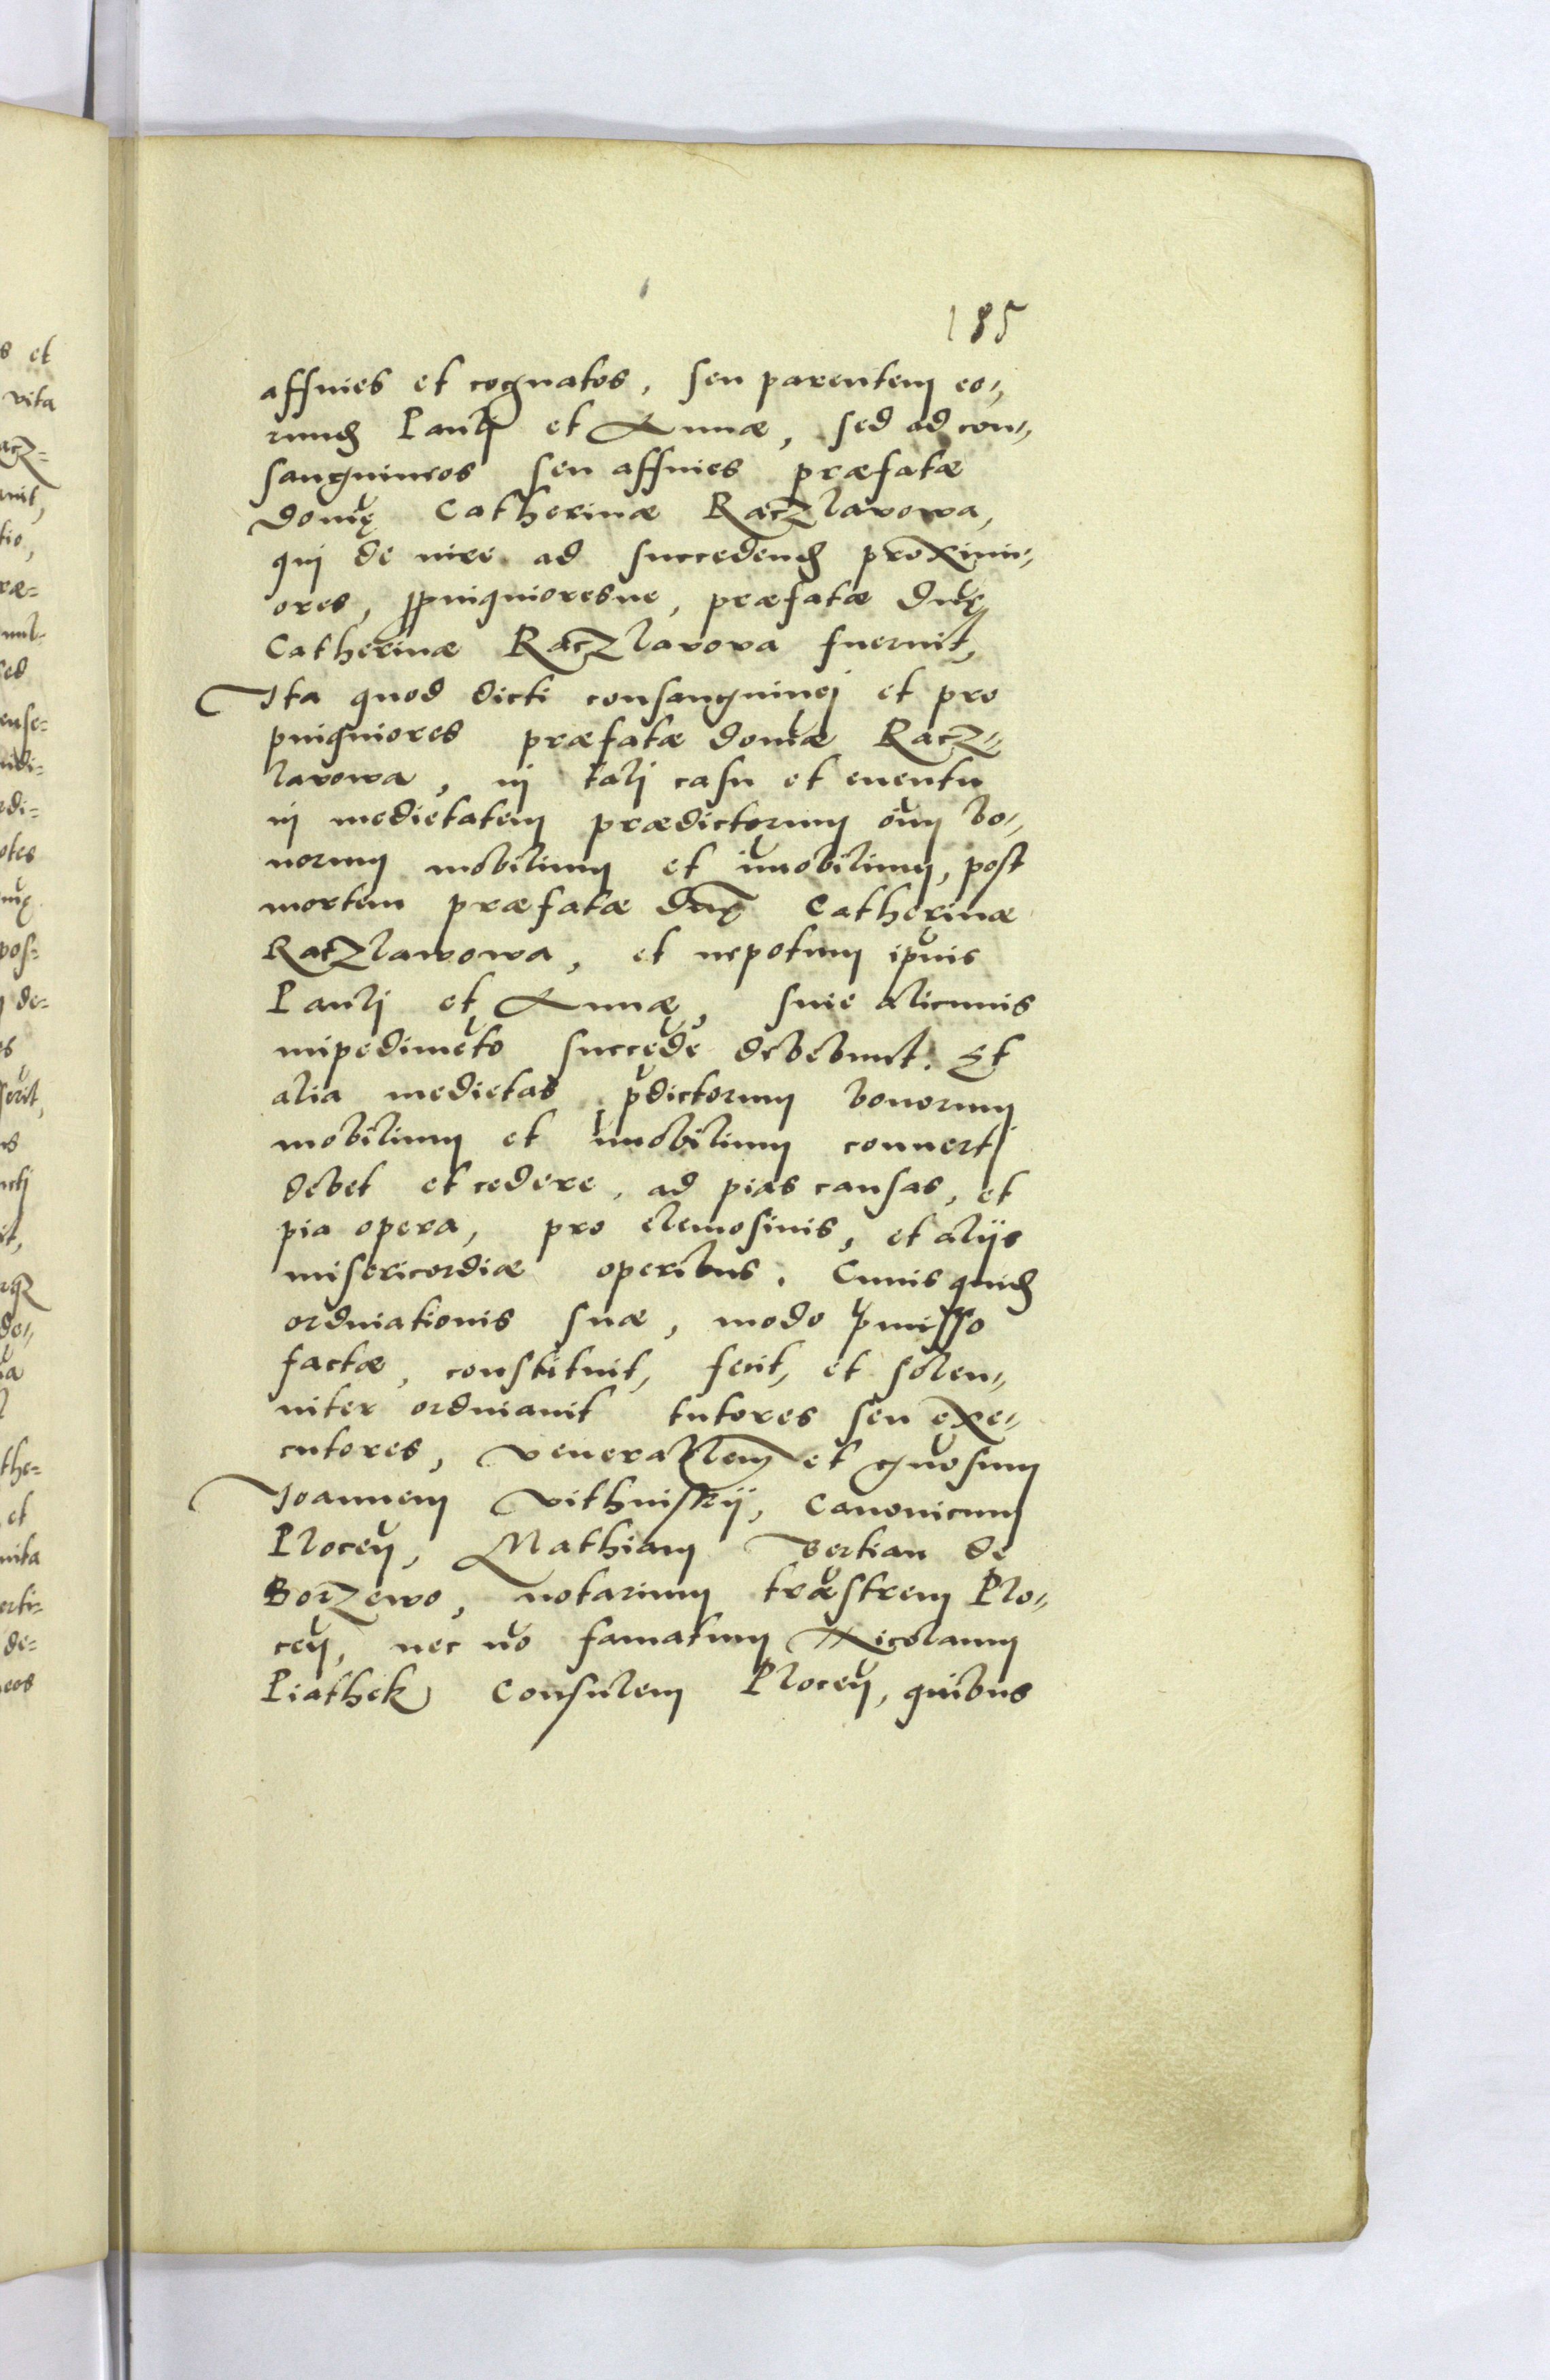 185
affines et cognatos, seu parentem eo„
rund Pauli et Annæ, sed ad con„
sanguineos seu affines præfatæ
Domę Catherinæ Raczlawowa,
qui de iure ad succedend proximi„
ores, ppinquioresue, præfatæ Dnę
Catherinæ Raczlawowa fuerint,
Ita quod dicti consanguinei et pro
pinquiores præfatæ domæ Racz„
lawowa, in tali casu et euentu
in medietatem prædictorum oim bo„
norum mobilium et imobilium, post
mortem præfatæ Dnę Catherinæ
Raczlawowa, et nepotum ipius
Pauli et Annæ, sine alicuius
impedimeto succede debebunt. Et
alia medietas pdictorum bonorum
mobilium et imobilium conuerti
debet et cedere, ad pias causas, et
pia opera, pro elemosinis, et alijs
misericordiæ operibus. Cuius quid
ordinationis suæ, modo pmisso
factæ, constituit, fecit, et solen„
niter ordinauit tutores seu exe„
cutores, venerabilem et gnosum
Joannem Vithuiskij, Canonicum
Plocen, Mathiam Bertian de
Borzewo, notarium træstrem Plo„
cen, nec no famatum Nicolaum
Piathek Consulem Plocen, quibus
s et
vita
acz=
tio,
ræ=
ed
ense=
di=
otes
pos=
de=
es
erit,
it,
the=
et
erti=
de=
eos